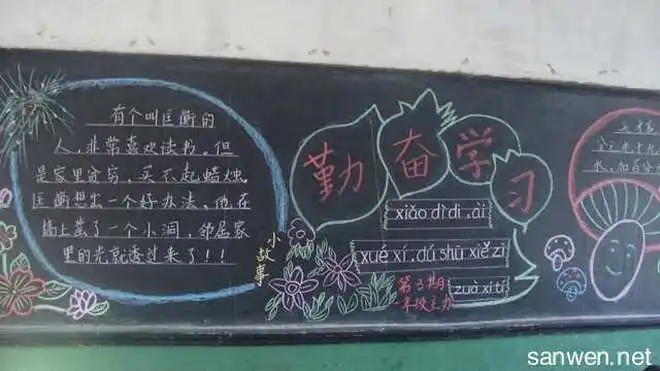 有个叫匡衡的
人，非常喜欢读书。但
是家里贫穷，买不起蜡烛。
匡衡想出一个好办法，他在
墙上凿了一个小洞，邻居家
里的光就透过来了！！
小故事
勤奋学习
xiǎo dì dì, ài
xué xí, dú shū xiě zì
zuò xí tí
第3期
年级主办
sanwen.net